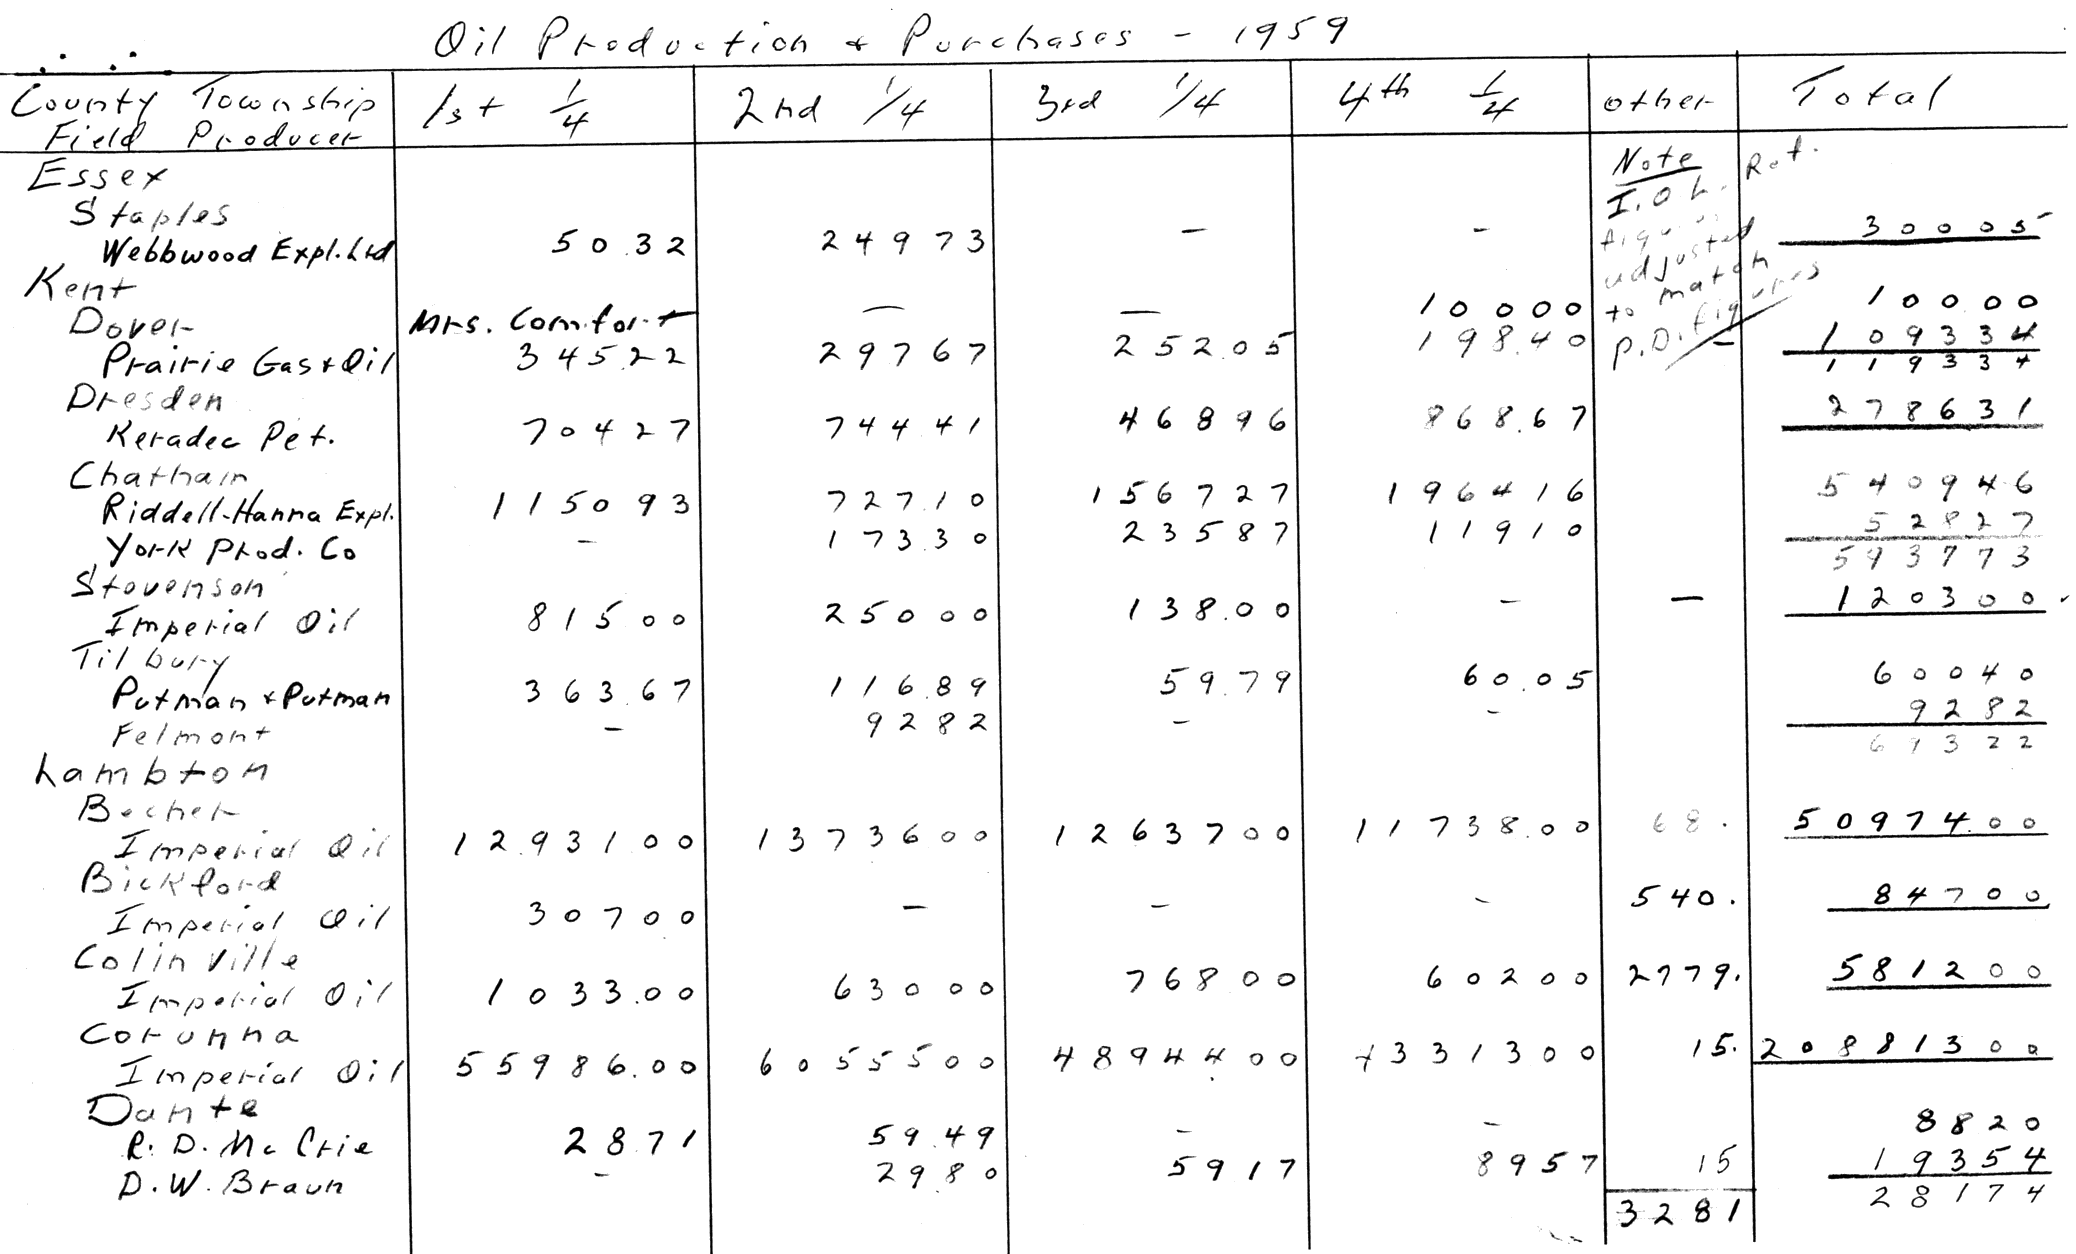 Oil Production & Purchases - 1959
County Township 1st 1/4 2nd 1/4 3rd 1/4 4th 1/4 other Total
Field Producer
Essex Note
I.O.L. Ret.
Staples
Webbwood Expl. Ltd 50.32 24973 - - 30005
adjusted
Kent to match
P.D. figures
Dover Mrs. Comfort - - 10000 10000
Prairie Gas & Oil 345.22 29767 252.05 198.40 - 109334
119334
Dresden
Keradec Pet. 70427 744.41 46896 868.67 278631
Chatham
Riddell-Hanna Expl. 115093 727.10 156727 196416 540946
York Prod. Co - 173.30 23587 11910 52827
593773
Stevenson
Imperial Oil 81500 25000 138.00 - - 120300
Tilbury
Putman & Putman 363.67 116.89 59.79 60.05 60040
Felmont - 9282 - - 9282
69322
Lambton
Becher
Imperial Oil 1293100 1373600 1263700 11738.00 68. 50974.00
Bickford
Imperial Oil 30700 - - - 540. 84700
Colinville
Imperial Oil 1033.00 63000 76800 60200 2779. 581200
Corunna
Imperial Oil 55986.00 6055500 4894400 4331300 15. 20881300
Dante
R. D. McCrie 2871 59.49 - - 8820
D. W. Braun - 29.80 5917 8957 15 19354
3281 28174